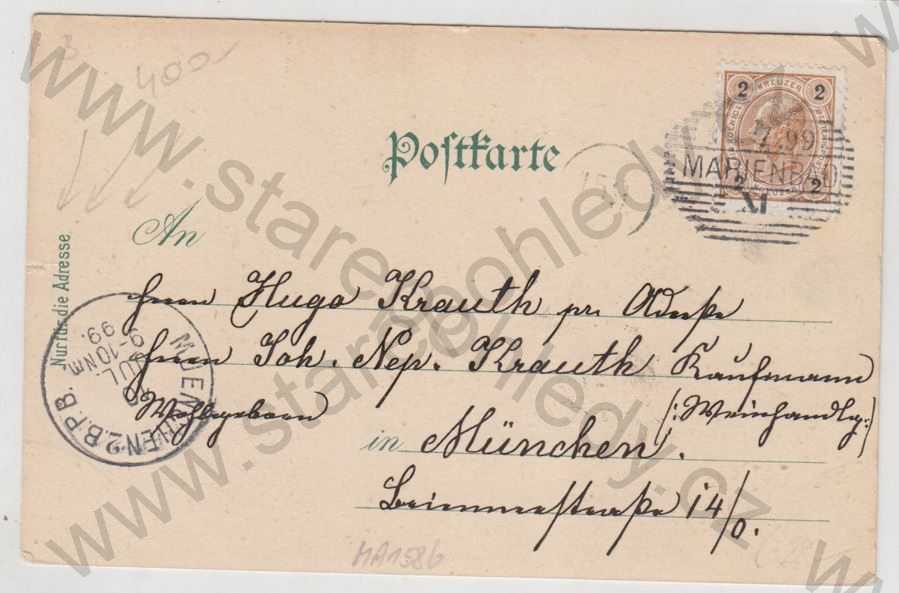 400-
Postkarte
2 KREUZER 2
2 2
7.99
MARIENBAD
XI
Nur für die Adresse.
An
Herrn Hugo Krauth pr. Adreße
Herrn Joh. Nep. Krauth Kaufmann
Wohlgeboren (: Weinhandlg :)
in München.
14/0.
MUENCHEN 2.B.P.B.
JUL.
9-10 NM
99.
MA1586
www.starepohledy.cz
www.starepohledy.cz